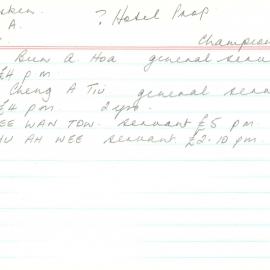 ? Hotel Prop
A.
Champion
Bun A. Hoa general serv
£4 p.m.
Cheng A Tiu general serva
£4 p.m. 2 yrs.
EE WAN TOW. Servant £5 p.m.
HU AH WEE servant £2.10 pm.